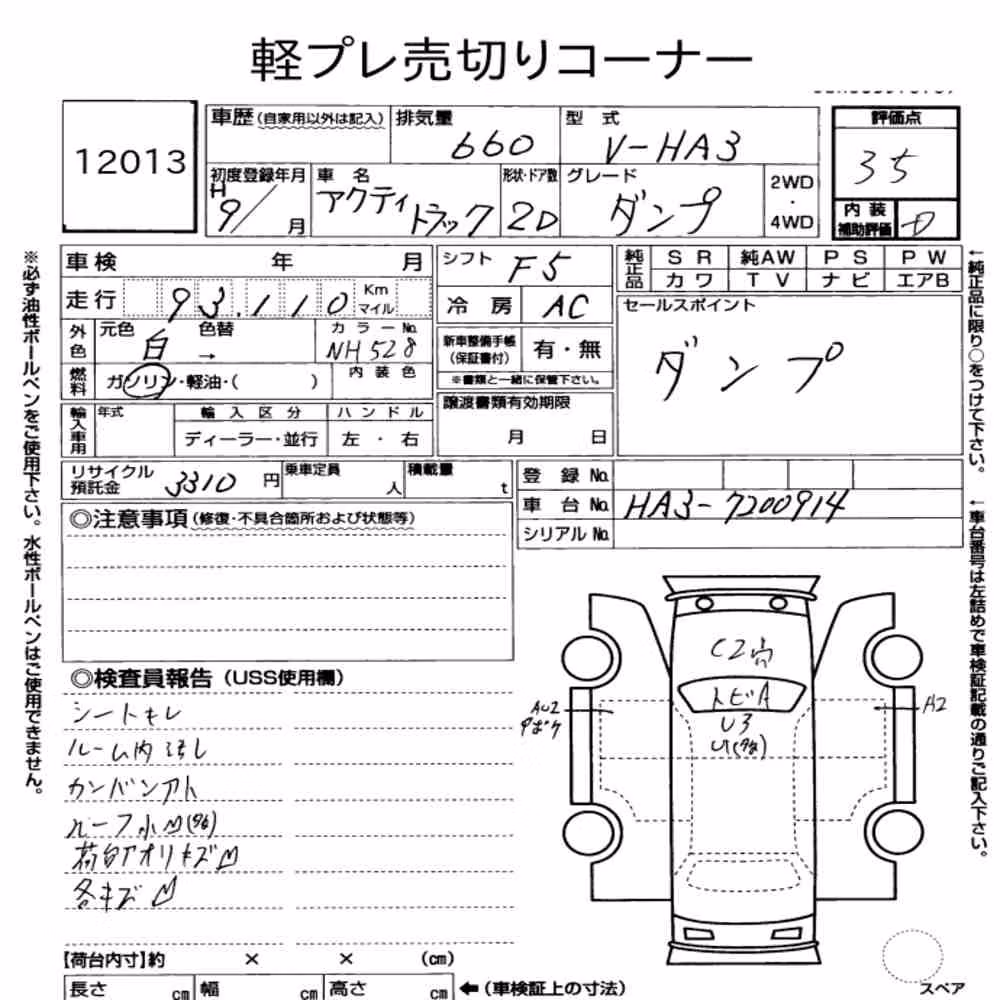 軽プレ売切りコーナー
12013
車歴（自家用以外は記入）
排気量 660
型式 V-HA3
評価点 35
初度登録年月 H 9/月
車名 アクティトラック
形状・ドア数 2D
グレード ダンプ
2WD・4WD
内装補助評価 D
車検 年 月
シフト F5
純正品 SR 純AW PS PW
カワ TV ナビ エアB
走行 93,110 Km マイル
冷房 AC
セールスポイント
ダンプ
外色 元色 白 色替 →
カラーNo. NH528
新車整備手帳（保証書付） 有・無
※書類と一緒に保管下さい。
燃料 ガソリン・軽油・（ ）
内装色
譲渡書類有効期限
月 日
輸入車用 年式 輸入区分 ハンドル
ディーラー・並行 左・右
リサイクル預託金 3310 円
乗車定員 人
積載量 t
登録No.
車台No. HA3-7200914
シリアルNo.
◎注意事項（修復・不具合箇所および状態等）
◎検査員報告（USS使用欄）
シートキレ
ルーム内ヨゴレ
カンバンアト
荷台アオリキズ凹
各キズ凹
C2穴
トビA
U3
AU2
A2
【荷台内寸】約 × × （cm）
長さ cm 幅 cm 高さ cm ←（車検証上の寸法）
スペア
※必ず油性ボールペンをご使用下さい。水性ボールペンはご使用できません。
←純正品に限り○をつけて下さい。
←車台番号は左詰めで車検証記載の通りご記入下さい。